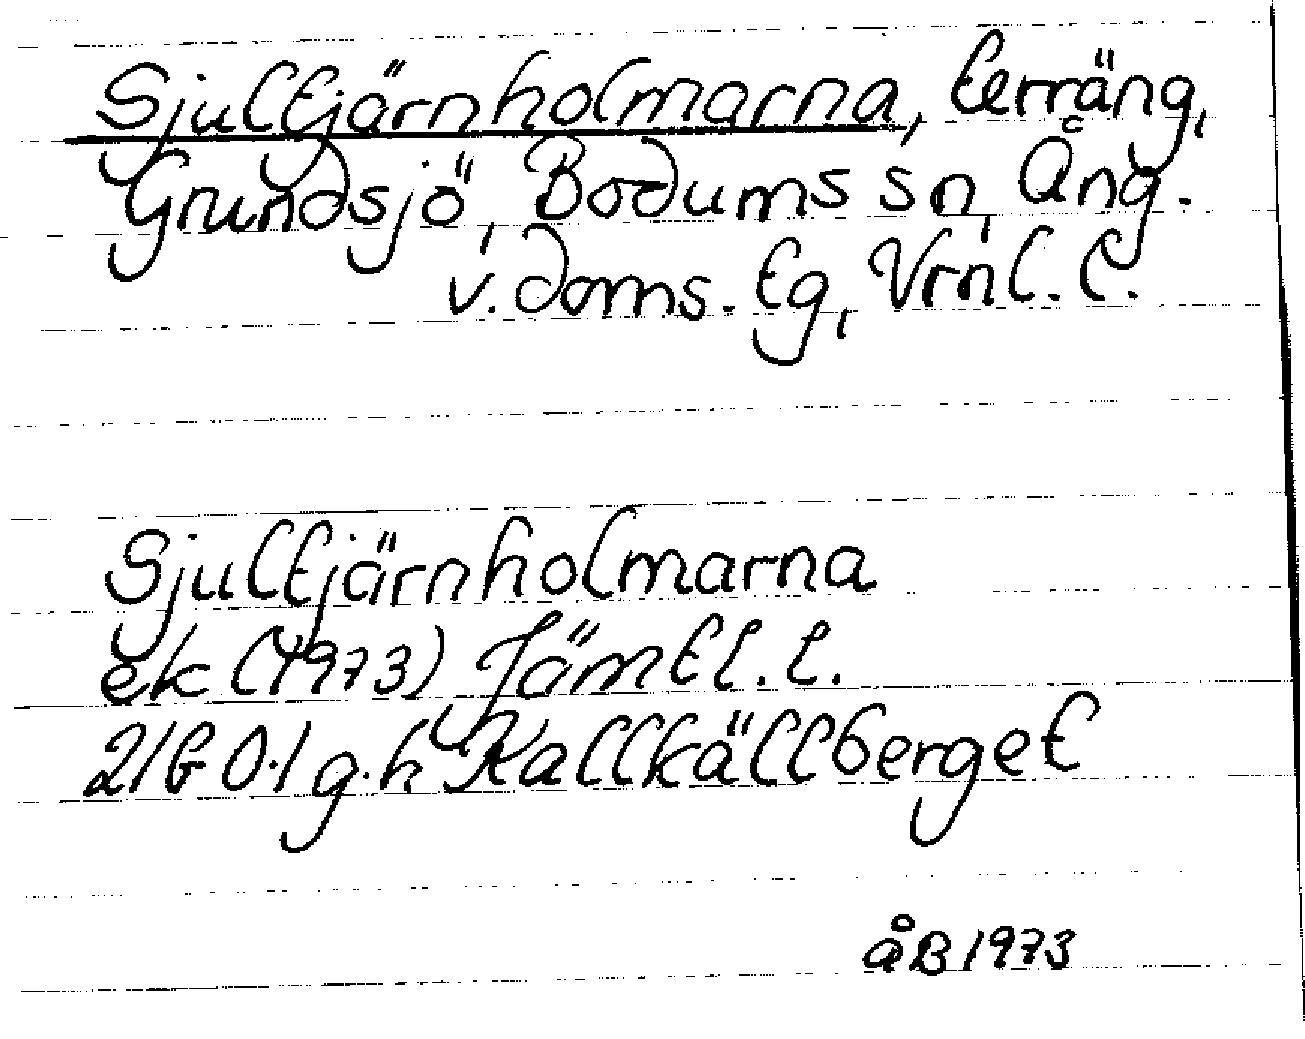 Sjultjärnholmarna, terräng,
Grundsjö, Bodums sn, Ång.
v. doms. tg, Vrnl. l.
Sjultjärnholmarna
ek (1973) Jämtl. l.
21G 0.1 g.h Kallkällberget
åB 1973